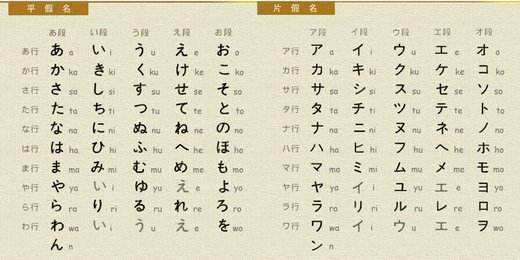 平假名
あ段 い段 う段 え段 お段
あ行 あ a い i う u え e お o
か行 か ka き ki く ku け ke こ ko
さ行 さ sa し si す su せ se そ so
た行 た ta ち ti つ tu て te と to
な行 な na に ni ぬ nu ね ne の no
は行 は ha ひ hi ふ hu へ he ほ ho
ま行 ま ma み mi む mu め me も mo
や行 や ya い i ゆ yu え e よ yo
ら行 ら ra り ri る ru れ re ろ ro
わ行 わ wa い i う u え e を wo
ん n
片假名
ア段 イ段 ウ段 エ段 オ段
ア行 ア a イ i ウ u エ e オ o
カ行 カ ka キ ki ク ku ケ ke コ ko
サ行 サ sa シ si ス su セ se ソ so
タ行 タ ta チ ti ツ tu テ te ト to
ナ行 ナ na ニ ni ヌ nu ネ ne ノ no
ハ行 ハ ha ヒ hi フ hu ヘ he ホ ho
マ行 マ ma ミ mi ム mu メ me モ mo
ヤ行 ヤ ya イ i ユ yu エ e ヨ yo
ラ行 ラ ra リ ri ル ru レ re ロ ro
ワ行 ワ wa イ i ウ u エ e ヲ wo
ン n